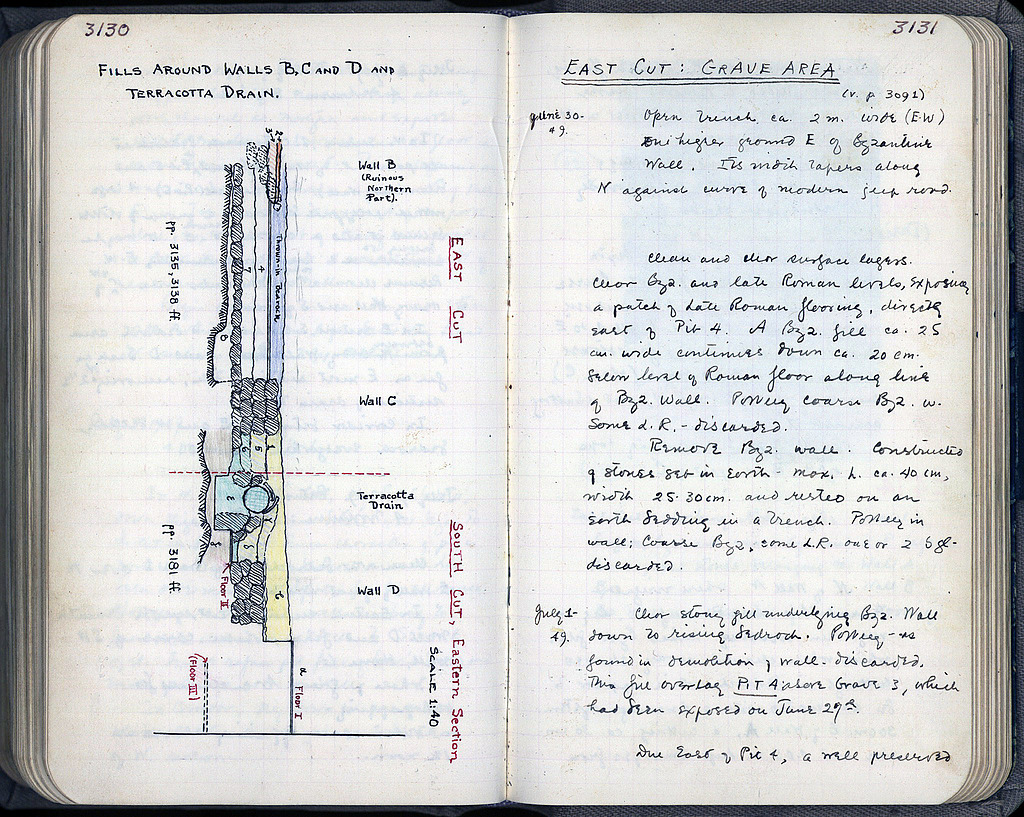 3130
FILLS AROUND WALLS B, C AND D AND
TERRACOTTA DRAIN.
Wall B
(Ruinous
Northern
Part).
Thrown-in Bedrock
4
7
pp. 3135, 3138 ff
EAST CUT
Wall C
5
6
Terracotta
Drain
pp. 3181 ff
SOUTH CUT, Eastern Section
SCALE 1:40
Floor II
Wall D
(Floor III)
Floor I
3131
EAST CUT: GRAVE AREA
(v. p. 3091)
June 30-
49.
Open trench ca. 2 m. wide (E-W)
on higher ground E of Byzantine
Wall. Its width tapers along
N against curve of modern jeep road.
Clean and clear surface layers.
Clear Byz. and late Roman levels, exposing
a patch of Late Roman flooring, directly
east of Pit 4. A Byz. fill ca. 25
cm. wide continues down ca. 20 cm.
below level of Roman floor along line
of Byz. Wall. Pottery coarse Byz. w.
some L.R. - discarded.
Remove Byz. wall. Constructed
of stones set in earth - max. h. ca. 40 cm,
width 25-30 cm. and rested on an
earth bedding in a trench. Pottery in
wall; Coarse Byz, some L.R. one or 2 Sgl-
discarded.
July 1-
49.
Clear stony fill underlying Byz. Wall
down to rising bedrock. Pottery - as
found in demolition of wall - discarded.
This fill overlay Pit A above Grave 3, which
had been exposed on June 29th.
Due East of Pit 4, a well preserved